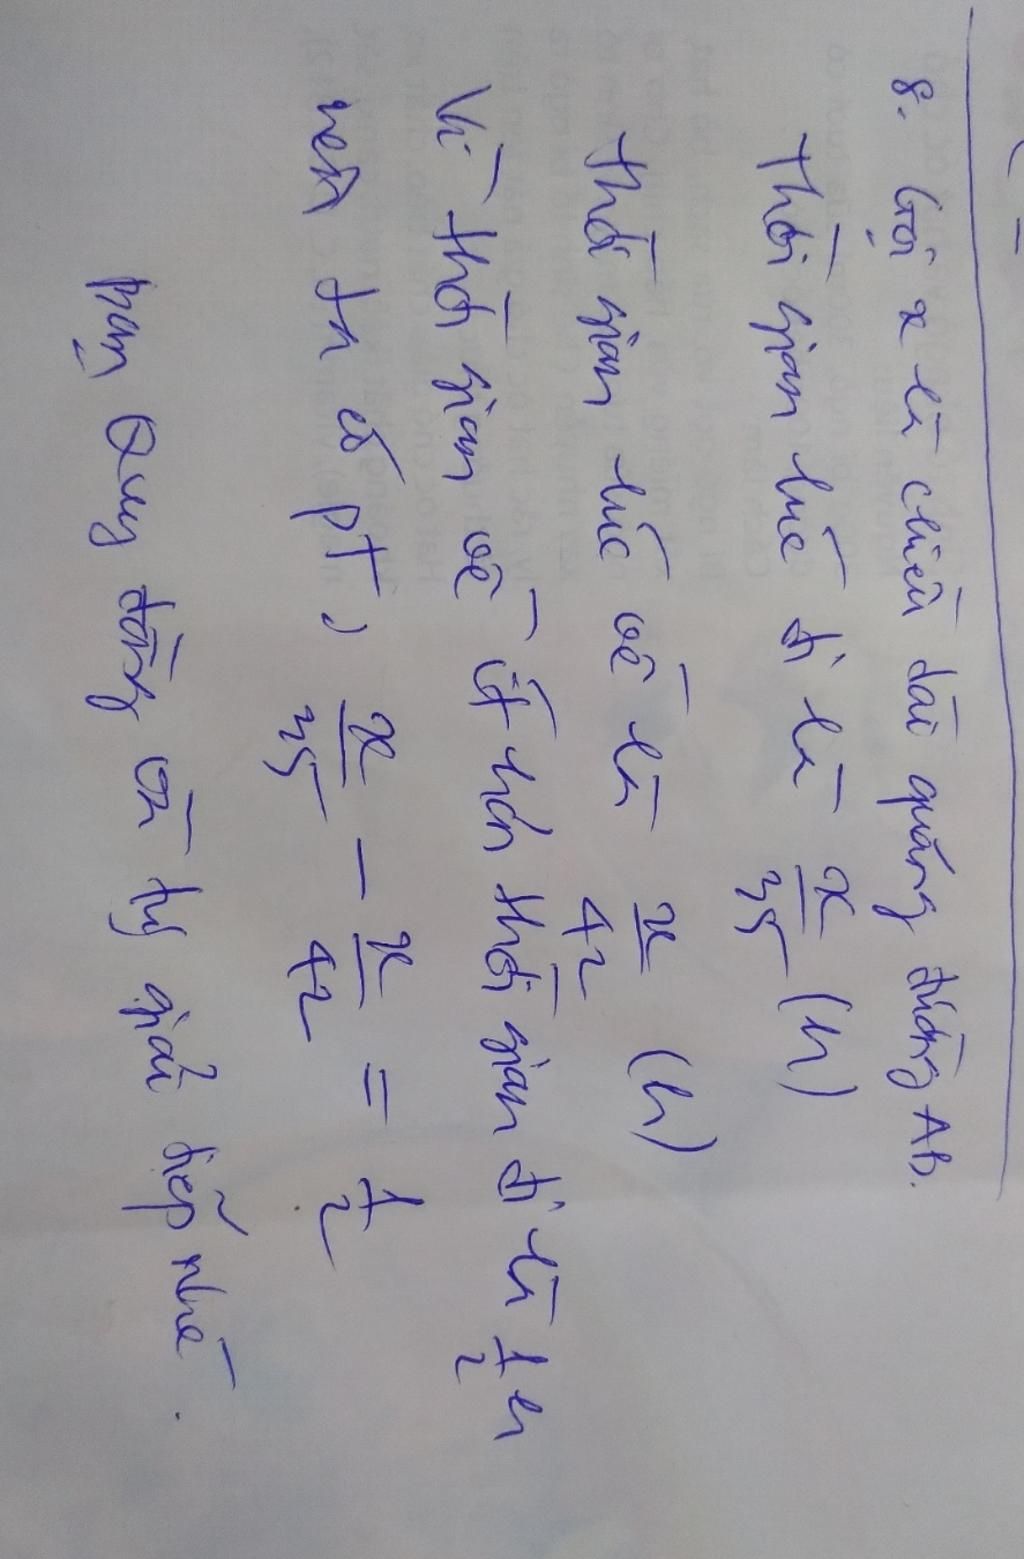 8. Gọi x là chiều dài quãng đường AB.
Thời gian lúc đi là x/35 (h)
Thời gian lúc về là x/42 (h)
Vì thời gian về ít hơn thời gian đi là 1/2 h
nên ta có pt, x/35 - x/42 = 1/2
bạn Quy đồng và tự giải tiếp nhé.